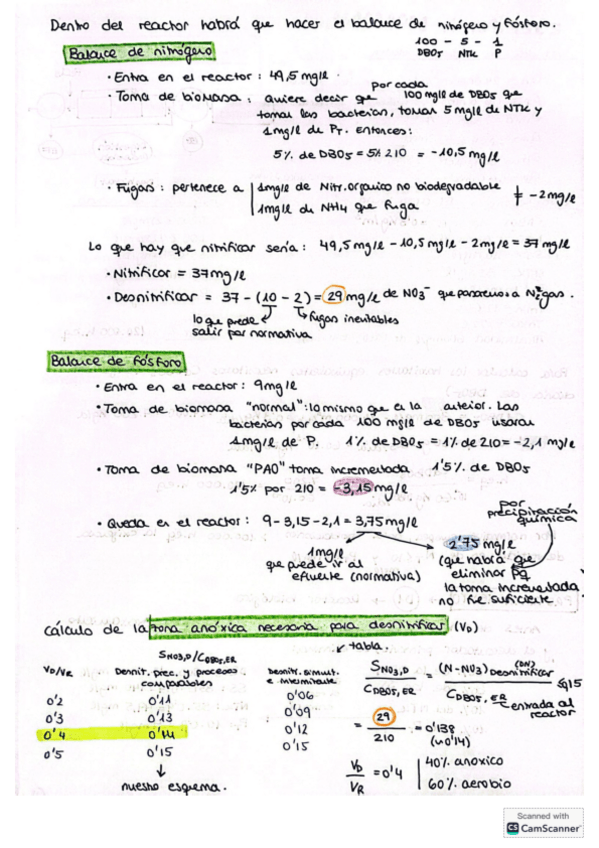 Dentro del reactor habrá que hacer el balance de nitrógeno y fósforo.
100 - 5 - 1
DBO5 NTK P
Balance de nitrógeno
• Entra en el reactor: 49,5 mg/l.
• Toma de biomasa: quiere decir que por cada 100 mg/l de DBO5 que
toman las bacterias, toman 5 mg/l de NTK y
1 mg/l de PT. Entonces:
5% de DBO5 = 5% 210 = -10,5 mg/l
• Fugas: pertenece a 1 mg/l de Nitr. orgánico no biodegradable
1 mg/l de NH4 que fuga
-2 mg/l
Lo que hay que nitrificar sería: 49,5 mg/l - 10,5 mg/l - 2 mg/l = 37 mg/l
• Nitrificar = 37 mg/l
• Desnitrificar = 37 - (10 - 2) = 29 mg/l de NO3⁻ que pasaremos a N2 gas.
lo que puede salir por normativa
fugas inevitables
Balance de fósforo
• Entra en el reactor: 9 mg/l
• Toma de biomasa "normal": lo mismo que en la anterior. Las
bacterias por cada 100 mg/l de DBO5 usarán
1 mg/l de P. 1% de DBO5 = 1% de 210 = -2,1 mg/l
• Toma de biomasa "PAO" toma incrementada 1'5% de DBO5
1'5% por 210 = -3,15 mg/l
• Queda en el reactor: 9 - 3,15 - 2,1 = 3,75 mg/l
por precipitación química
1 mg/l
que puede ir al
efluente (normativa)
2'75 mg/l
(que habría que
eliminar pq
la toma incrementada
no fue suficiente
Cálculo de la zona anóxica necesaria para desnitrificar (VD)
tabla.
SNO3,D/CDBO5,ER
VD/VR Desnit. prec. y procesos comparables Desnitr. simult. e intermitente
0'2 0'11 0'06
0'3 0'13 0'09
0'4 0'14 0'12
0'5 0'15 0'15
nuestro esquema.
SNO3,D / CDBO5,ER = (N-NO3) Desnitrificar (DN) / CDBO5,ER
entrada al reactor
= 29 / 210 = 0'138
(≈0'14)
VD / VR = 0'4 40% anóxico
60% aerobio
Scanned with
CS CamScanner